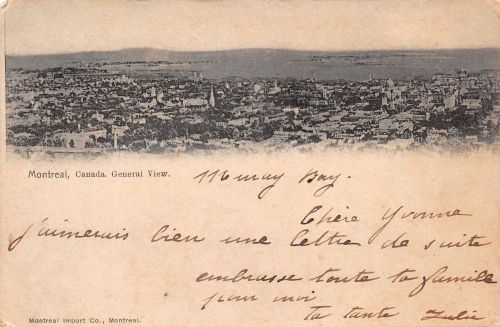 Montreal, Canada. General View.
116 may Bay.
Chère Yvonne
j'aimerais bien une lettre de suite
embrasse toute ta famille
pour moi
ta tante Julie
Montreal Import Co., Montreal.